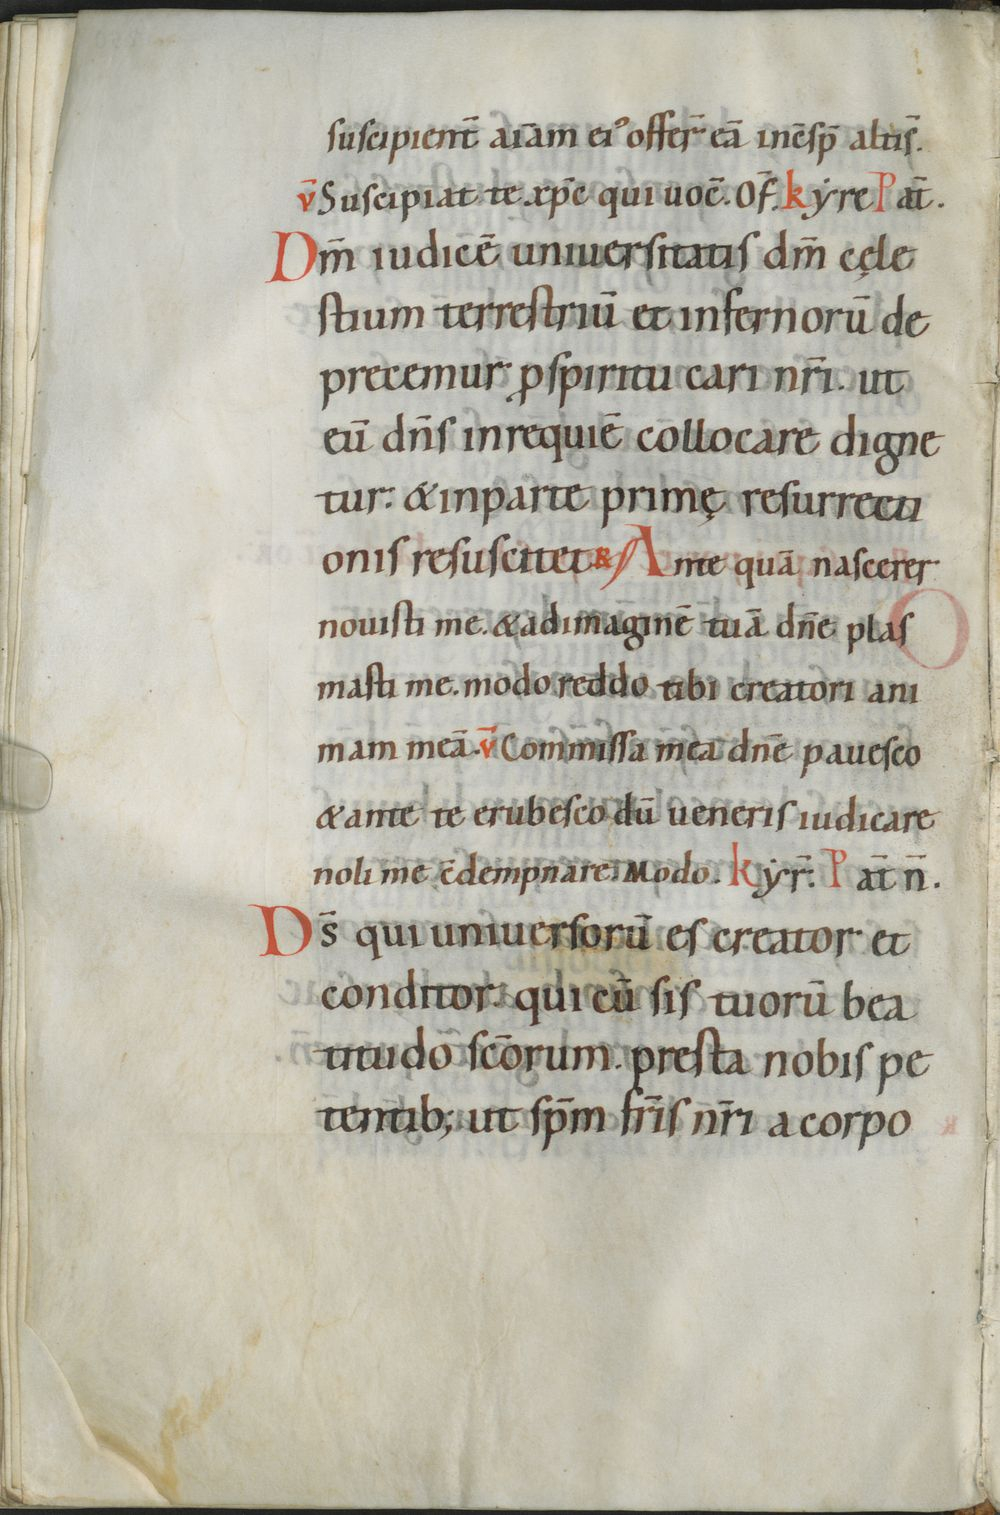 suscipient̄ aīam ei᾽ offer̄ eā inc̄sp̄ altis̄.
v̄ Suscipiat te xp̄c qui uoc̄. Of̄. kẏre Pat̄.
Dm̄ iudicē uniuersitatis dm̄ cęle
stium terrestriū et infernorū de
precemur ꝓ spiritu cari nr̄i. ut
eū dn̄s in requiē collocare digne
tur. & in parte primę resurrecti
onis resuscitet R/ Ante quā nascerer
nouisti me. & ad imaginē tuā dn̄e plas
masti me. modo reddo tibi creatori ani
mam meā. v̄ Commissa mea dn̄e pauesco
& ante te erubesco dū ueneris iudicare
noli me c̄dempnare. Modo. kẏr̄. Pat̄ n̄.
Ds̄ qui uniuersorū es creator et
conditor. qui cū sis tuorū bea
titudo sc̄orum. presta nobis pe
tentib; ut sp̄m fr̄is nr̄i a corpo